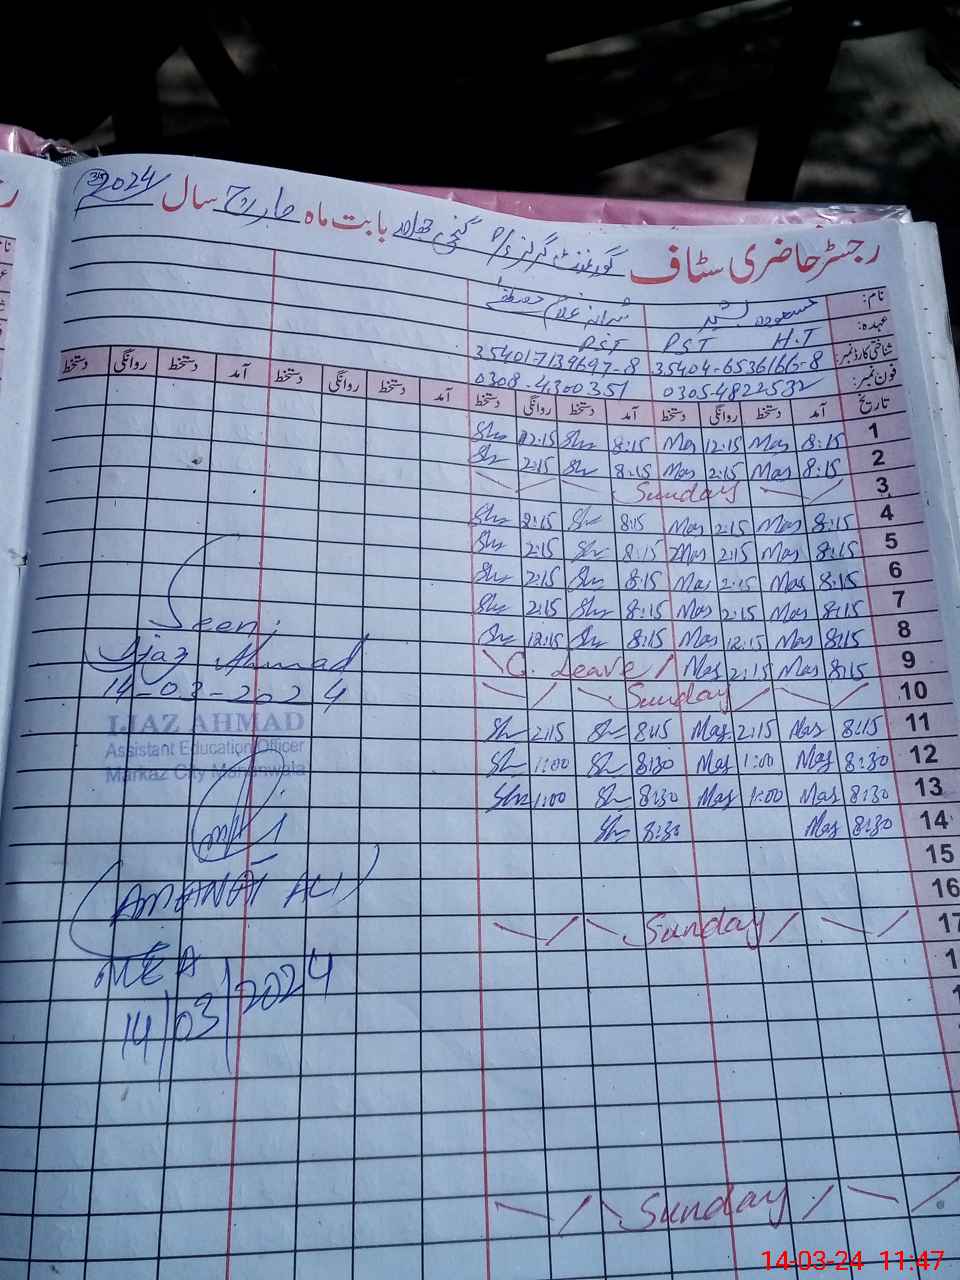 رجسٹر حاضری سٹاف گورنمنٹ گرلز P/S بابت ماہ مارچ سال 2024
نام:
عہدہ: H.T PST PST
شناختی کارڈ نمبر: 35404-6536166-8 35401-7139697-8
فون نمبر: 0305-4822532 0308-4300351
تاریخ آمد دستخط روانگی دستخط آمد دستخط روانگی دستخط آمد دستخط روانگی دستخط آمد دستخط روانگی دستخط
1 8:15 Mas 12:15 Mas 8:15 Sh 12:15 Sh
2 8:15 Mas 2:15 Mas 8:15 Sh 2:15 Sh
3 Sunday
4 8:15 Mas 2:15 Mas 8:15 Sh 2:15 Sh
5 8:15 Mas 2:15 Mas 8:15 Sh 2:15 Sh
6 8:15 Mas 2:15 Mas 8:15 Sh 2:15 Sh
7 8:15 Mas 2:15 Mas 8:15 Sh 2:15 Sh
8 8:15 Mas 12:15 Mas 8:15 Sh 12:15 Sh
9 8:15 Mas 2:15 Mas C. Leave
10 Sunday
11 8:15 Mas 2:15 Mas 8:15 Sh 2:15 Sh
12 8:30 Mas 1:00 Mas 8:30 Sh 1:00 Sh
13 8:30 Mas 1:00 Mas 8:30 Sh 1:00 Sh
14 8:30 Mas 8:30 Sh
15
16
17 Sunday
Sunday
Seen
Ijaz Ahmad
14-03-2024
IJAZ AHMAD
Assistant Education Officer
Markaz City Mananwala
(AMANAT ALI)
MEA
14/03/2024
14-03-24 11:47